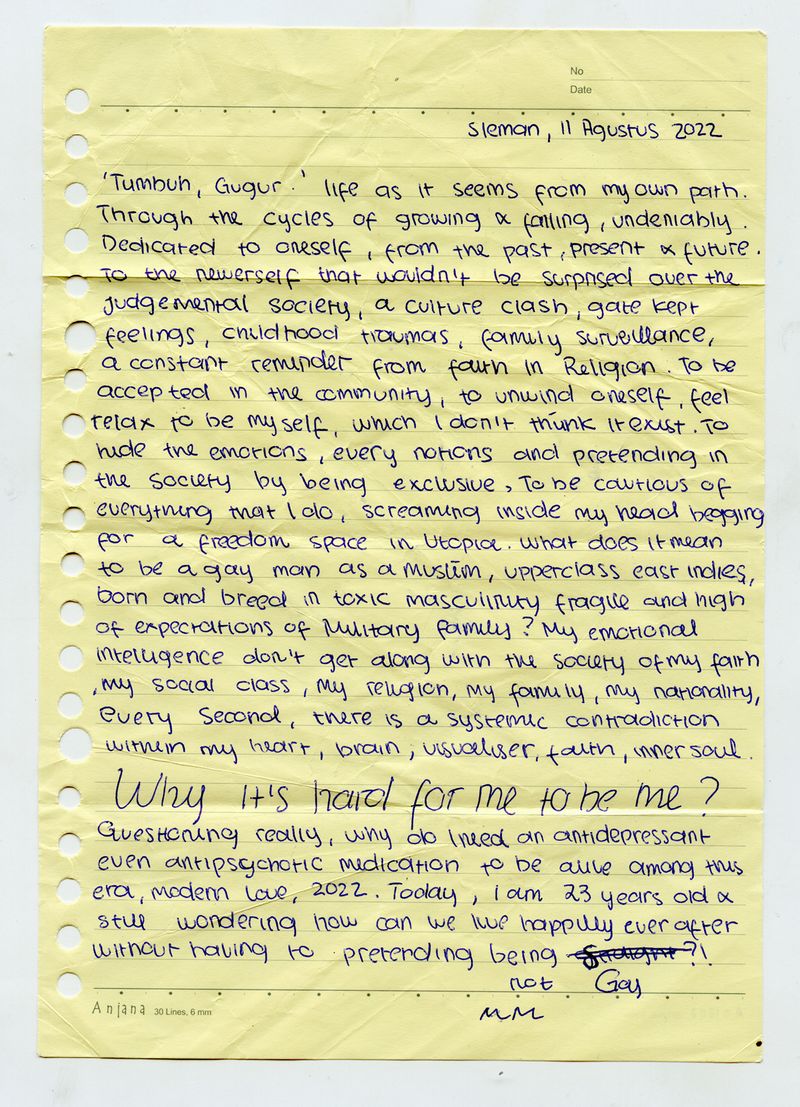 No
Date
Sleman, 11 Agustus 2022
'Tumbuh, Gugur.' life as it seems from my own path.
Through the cycles of growing & falling, undeniably.
Dedicated to oneself, from the past, present & future.
To the newerself that wouldn't be surprised over the
judgemental society, a culture clash, gate kept
feelings, childhood traumas, family surveillance,
a constant reminder from faith in Religion. To be
accepted in the community, to unwind oneself, feel
relax to be myself, which I don't think it exist. To
hide the emotions, every notions and pretending in
the society by being exclusive, To be cautious of
everything that I do, screaming inside my head begging
for a freedom space in Utopia. What does it mean
to be a gay man as a muslim, upperclass east indies,
born and breed in toxic masculinity fragile and high
of expectations of Military family? My emotional
intelligence don't get along with the society of my faith
, my social class, my religion, my family, my nationality,
every second, there is a systemic contradiction
within my heart, brain, visualiser, faith, inner soul.
Why it's hard for me to be me?
Questioning really, why do I need an antidepressant
even antipsychotic medication to be alive among this
era, modern love, 2022. Today, i am 23 years old &
still wondering how can we live happily ever after
without having to pretending being straight?!
not Gay
MM
Anjana 30 Lines, 6 mm